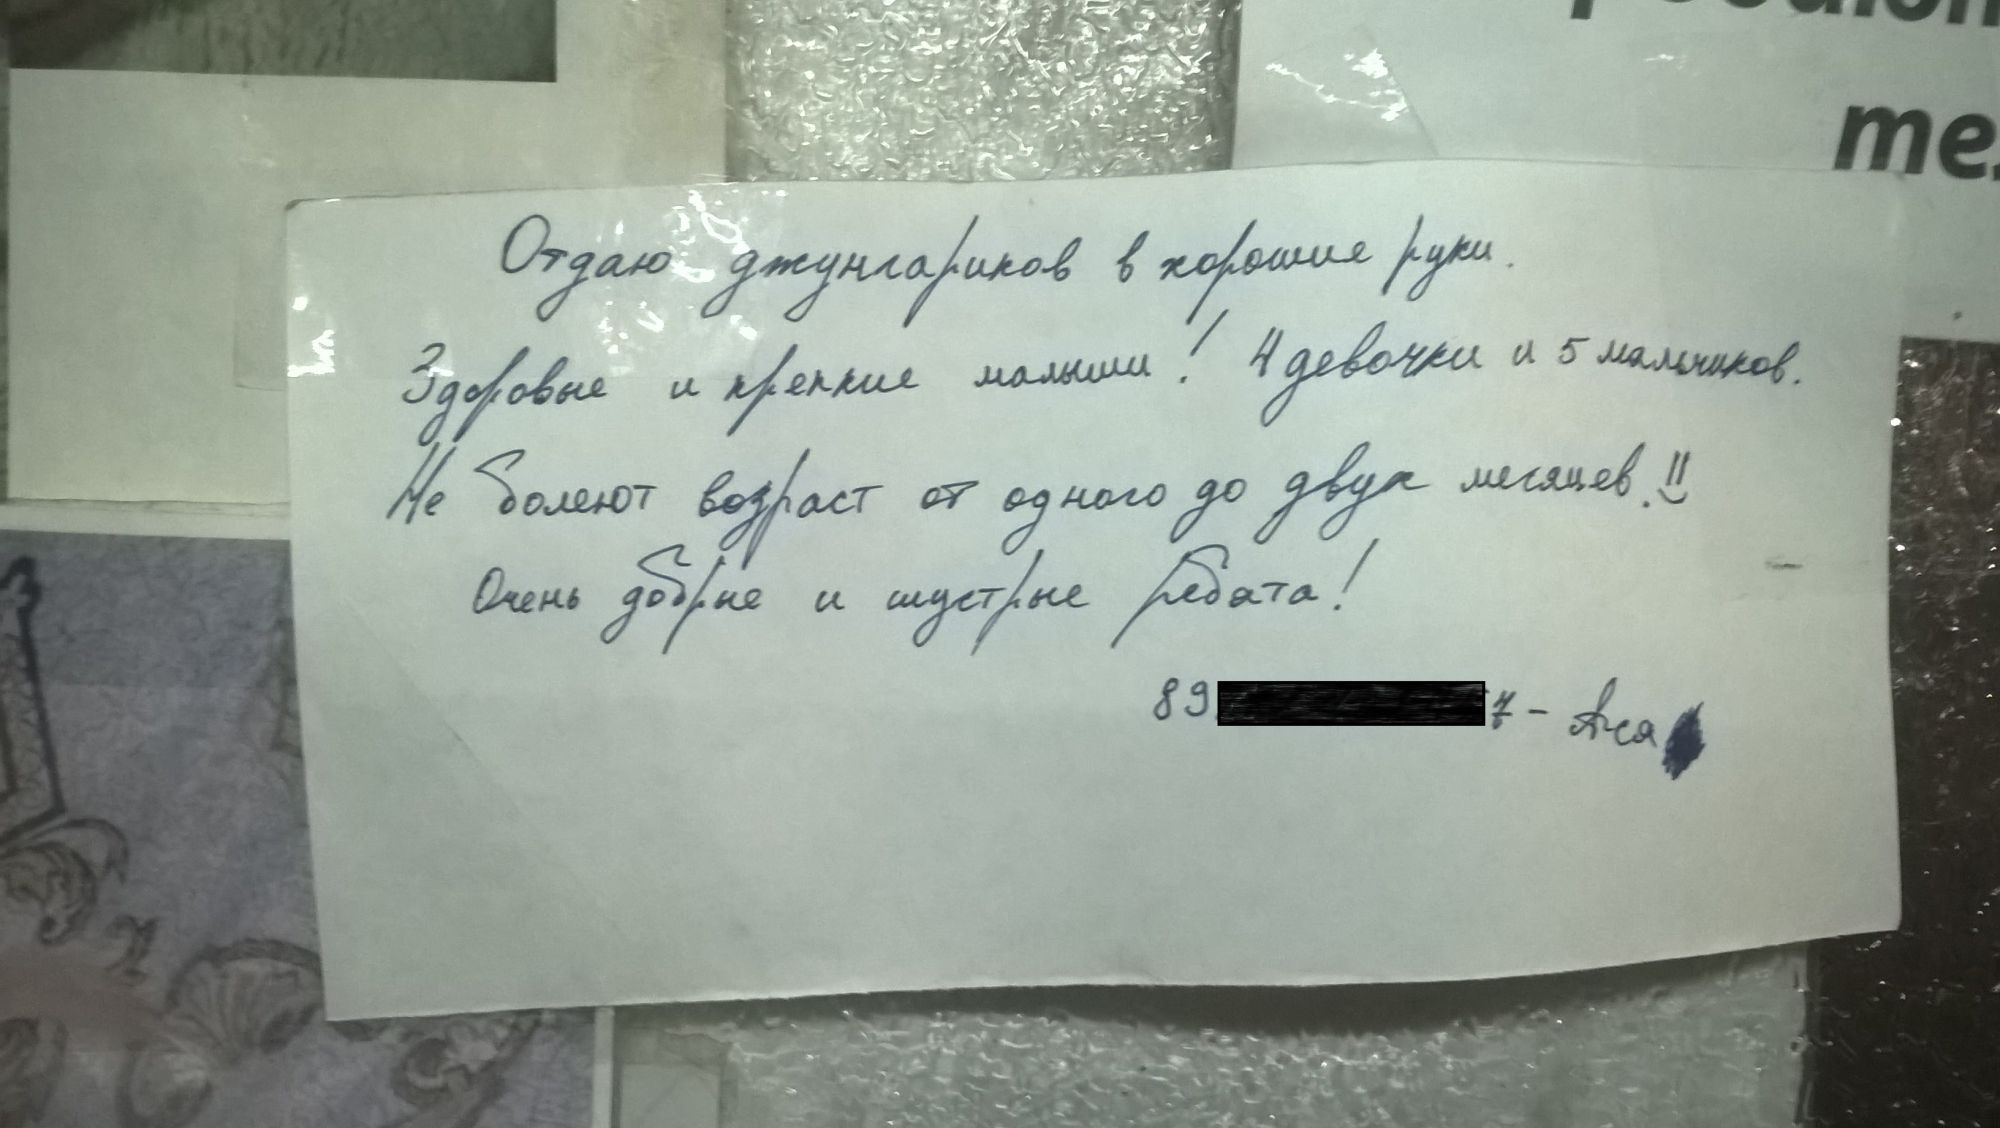 тел
Отдаю джунгариков в хорошие руки.
Здоровые и крепкие малыши! 4 девочки и 5 мальчиков.
Не болеют возраст от одного до двух месяцев.!!
Очень добрые и шустрые ребята!
89 7 - Ася